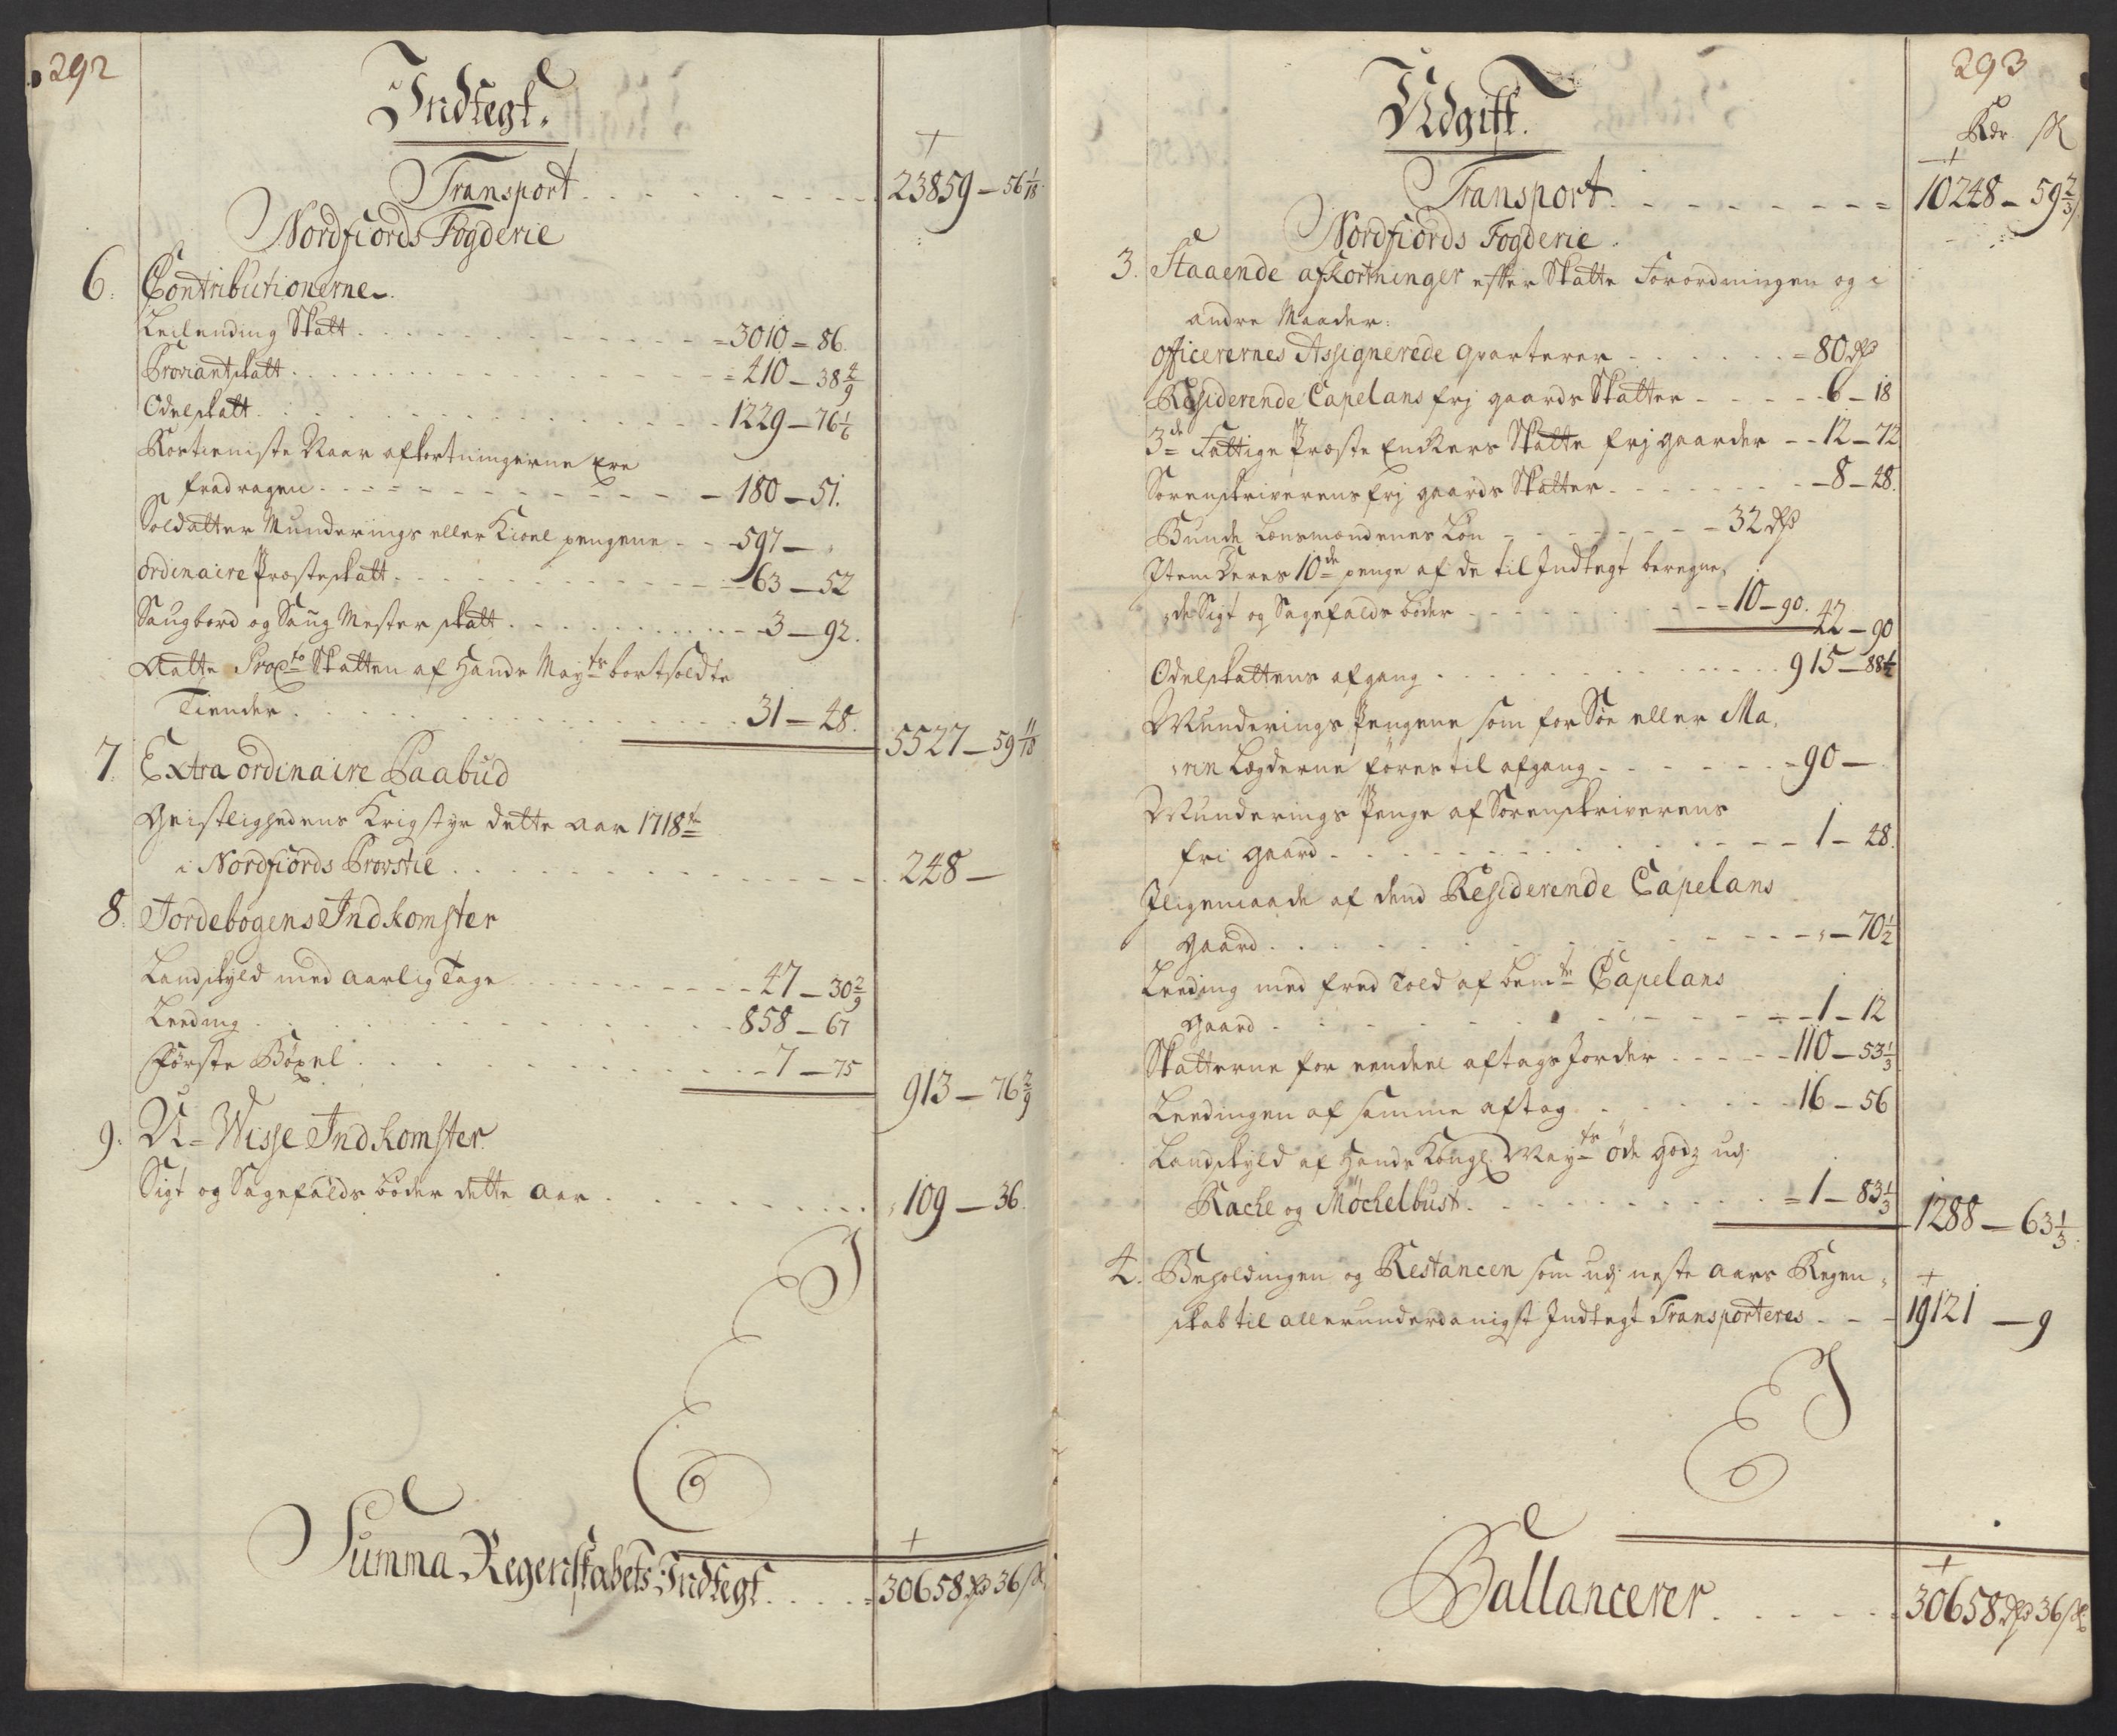 292
Indtegt.
Transport - - - - 23859 — 56 1/18
Nordfiords Fogderie
6. Contributionerne.
Leilending Skatt - - - 3010 = 86.
Proviantskatt - - - 410 — 38 4/9
Odelskatt - - - 1229 — 76 1/6
Rostieniste Naar afkortningerne Ere
fradragen - - - 180 — 51.
Soldatter Munderings eller Kioel pengene - - 597 — "
Ordinaire Præsteskatt - - - 63 — 52
Saugbord og Saug Mester skatt - - - 3 — 92.
Aatte Proc.to Skatten af Hands May.ts bortsoldte
Tiender - - - 31 — 48. 5527 — 59 11/18
7. Extra ordinaire Paabud
Geistlighedens Krigstyr dette aar 1718.te
i Nordfiords Provstie - - - 248 —
8. Jordebogens Indkomster
Landskyld med aarlig Tage - - - 47 — 30 2/9
Leeding - - - 858 — 67
Første Böxel - - - 7 — 75 913 — 76 2/9
9. U-Wisse Indkomster
Sigt og Sagefalds bøder dette aar - - - 109 — 36.
Summa Regenskabets Indtegt - - - 30658 rdr 36 sk
293
Udgift.
Rdr sk
Transport - - - 10248 — 59 2/3
Nordfiords Fogderie.
3. Staaende afkortninger efter Skatte Forordningen og i
andre Maader:
Officerernes Assignerede qvarterer - - - 80 rdr
Residerende Capelans frj gaards Skatter - - - 6 — 18
3de Fattige Præste Enckers Skatte frj gaarder - - 12 — 72
Sorenskriverens frj gaards Skatter - - - 8 — 48.
Bunde Lensmændenes Løn - - - 32 rdr
Item Deres 10de penge af de til Indtegt beregne,
,de Sigt og Sagefalds bøder - - - 10 — 90. 42 — 90
Odelskattens afgang - - - 915 — 88 1/2
Munderings Pengene som for Søe eller Ma,
,rin Lægderne føres til afgang - - - 90 —
Munderings Penge af Sorenskriverens
fri gaard - - - 1 — 48.
Iligemaade af dend Residerende Capelans
gaard - - - " — 70 1/2
Leeding med fred Told af bem.te Capelans
gaard - - - 1 — 12
Skatterne for eendeel aftags Jorder - - - 110 — 53 1/3
Leedingen af samme aftag - - - 16 — 56
Landskyld af Hands Kongl. May.ts öde godz udj
Rache og Möchelbust - - - 1 — 83 1/3 1288 — 63 1/3
4. Beholdingen og Restancen som udj neste aars Regen,
skab til allerunderdanigst Indtegt Transporteres - - 19121 — 9
Ballancerer - - - 30658 rdr 36 sk